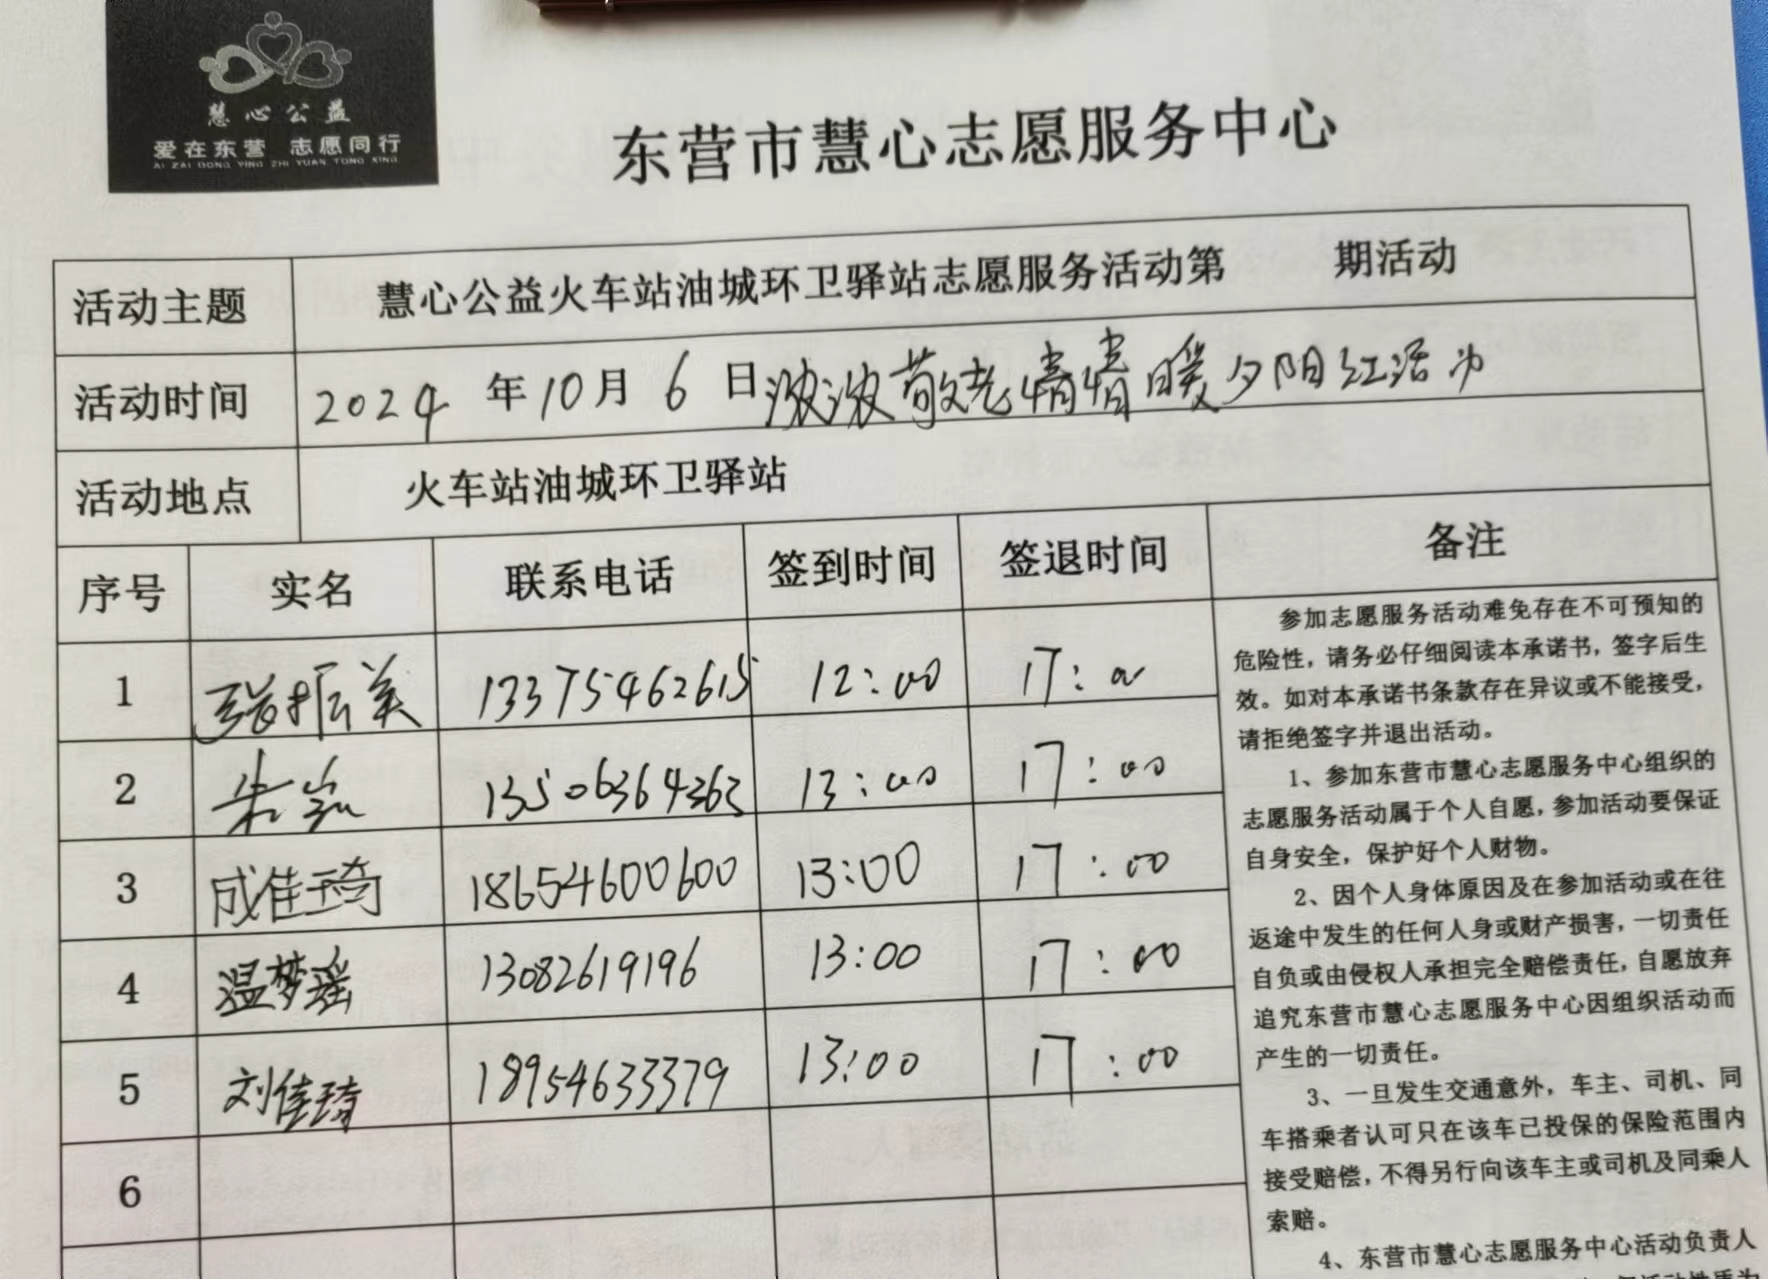 慧心公益
爱在东营 志愿同行
AI ZAI DONG YING ZHI YUAN TONG XING
东营市慧心志愿服务中心
活动主题 慧心公益火车站油城环卫驿站志愿服务活动第 期活动
活动时间 2024 年 10 月 6 日 浓浓敬老情情暖夕阳红活动
活动地点 火车站油城环卫驿站
序号 实名 联系电话 签到时间 签退时间 备注
1 张振美 13375462615 12:00 17:00
2 朱泓 13506364363 13:00 17:00
3 成佳琦 18654600600 13:00 17:00
4 温梦瑶 13082619196 13:00 17:00
5 刘佳琦 18954633379 13:00 17:00
6
参加志愿服务活动难免存在不可预知的
危险性，请务必仔细阅读本承诺书，签字后生
效。如对本承诺书条款存在异议或不能接受，
请拒绝签字并退出活动。
1、参加东营市慧心志愿服务中心组织的
志愿服务活动属于个人自愿，参加活动要保证
自身安全，保护好个人财物。
2、因个人身体原因及在参加活动或在往
返途中发生的任何人身或财产损害，一切责任
自负或由侵权人承担完全赔偿责任，自愿放弃
追究东营市慧心志愿服务中心因组织活动而
产生的一切责任。
3、一旦发生交通意外，车主、司机、同
车搭乘者认可只在该车已投保的保险范围内
接受赔偿，不得另行向该车主或司机及同乘人
索赔。
4、东营市慧心志愿服务中心活动负责人